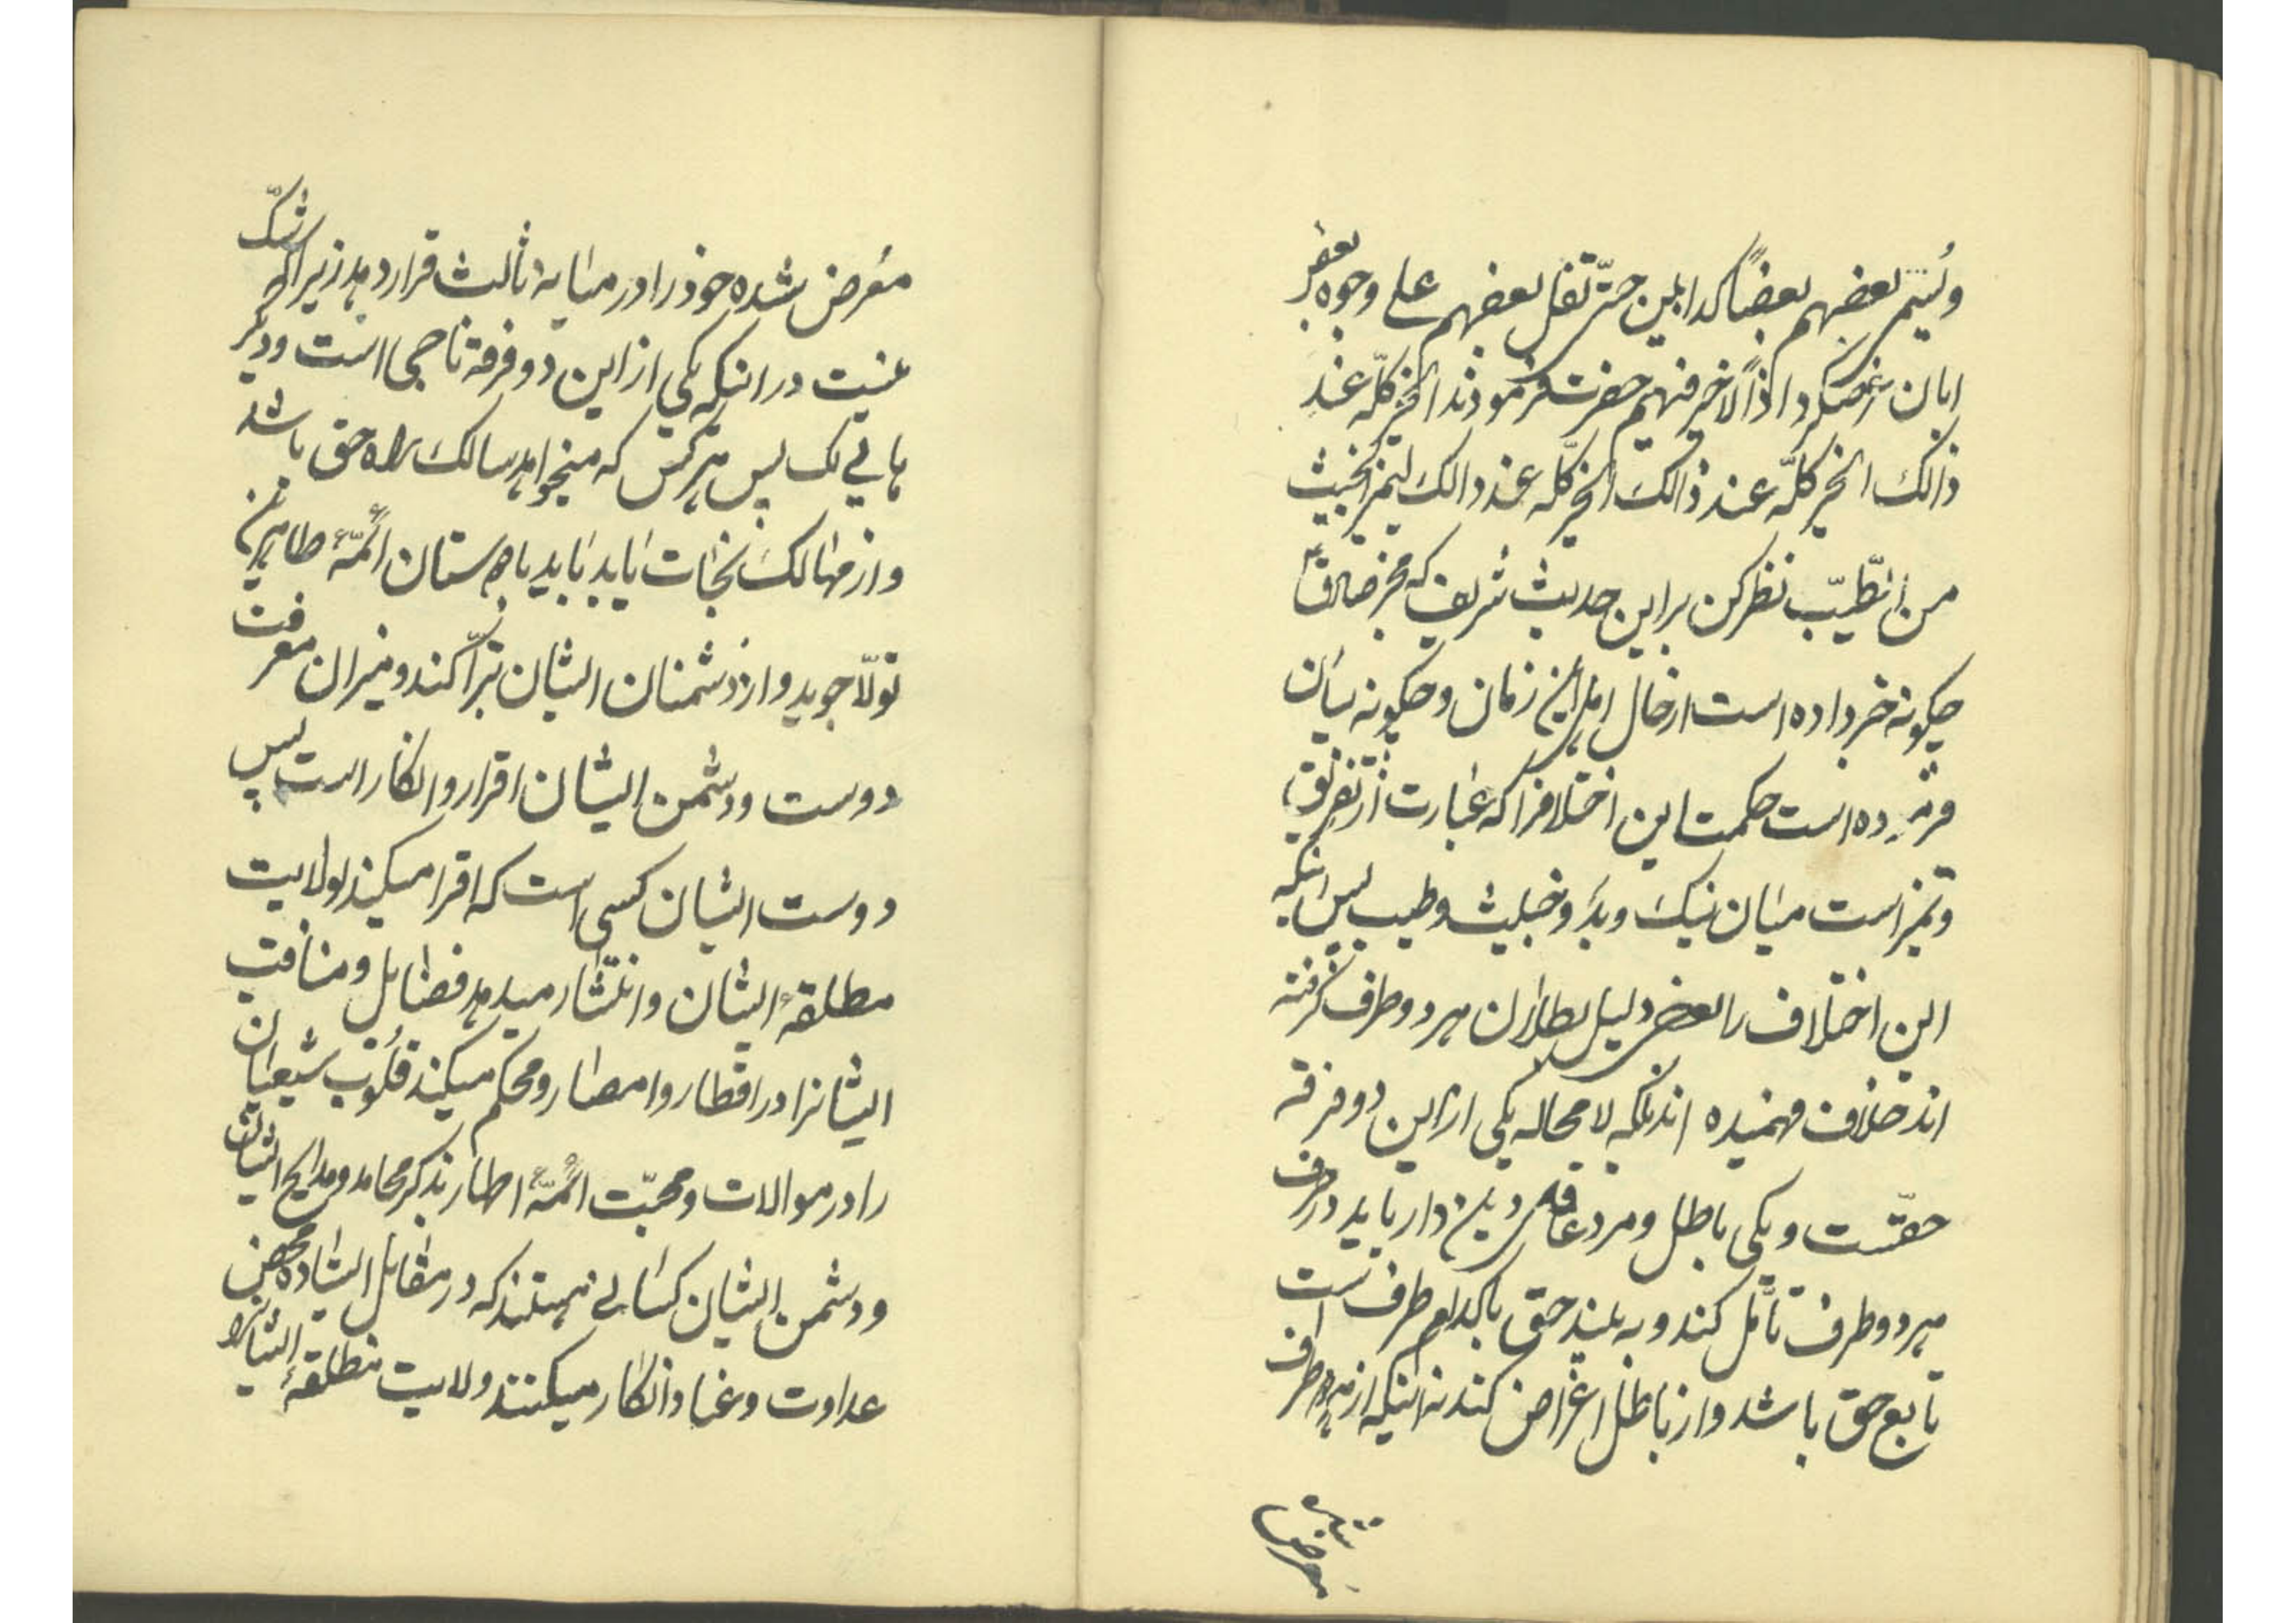 ویسم بعضهم بعضاً کذابین حتّی تفل بعضهم علی وجوه بعض
ابان عرضکرد اذاً لاخیر فیهم حضرت فرمودند الخیر کلّه عند
ذالک الخیر کلّه عند ذالک الخیر کلّه عند ذالک لیتمیز الخبیث
من الطّیّب نظر کن بر این حدیث شریف که مخبر صادق
چکونه خبر داده است از حال اهل این زمان و چکونه بیان
فرموده است حکمت این اختلافرا که عبارت از تفریق
و تمیز است میان نیک و بد و خبیث و طیب پس آنکه
این اختلاف را بعضی دلیل بطلان هر دو طرف گرفته
اند خلاف فهمیده اند بلکه لا محاله یکی از این دو فرقه
حقّست و یکی باطل و مرد عاقل دین دار باید در حرف
هر دو طرف تأمّل کند و به بیند حق باکدام طرف است
تابع حق باشد و از باطل اعراض کند نه اینکه از هر دو طرف
معرض شده
معرض شده خود را در میانه ثالث قرار دهد زیرا که شکّ
نیست در اینکه یکی از این دو فرقه ناجی است و دیگر
هالک پس هر کس که میخواهد سالک راه حق باشد
و از مهالک نجات یابد باید با دوستان ائمّهٔ طاهرین
تولّا جوید و از دشمنان ایشان تبرّا کند و میزان معرفت
دوست و دشمن ایشان اقرار و انکار است پس
دوست ایشان کسی است که اقرا میکند بولایت
مطلقهٔ ایشان و انتشار میدهد فضایل و مناقب
ایشانرا در اقطار و امصار و محکم میکند قلوب شیعیان
را در موالات و محبّت ائمّهٔ اطهار بذکر محامد و مدایح ایشان
و دشمن ایشان کسانی هستند که در مقابل ایستاده محض
عداوت و عناد انکار میکنند ولایت مطلقهٔ ایشانرا